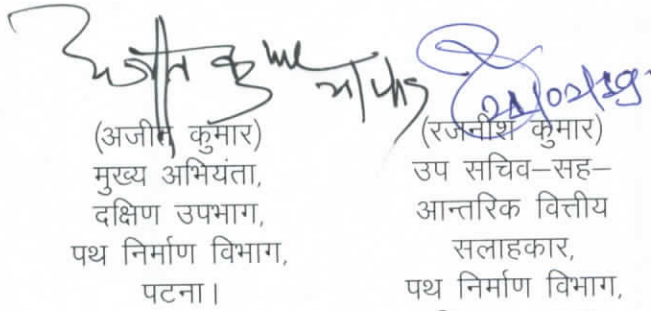 अजीत कुमार
21/02/19
(अजीत कुमार)
मुख्य अभियंता,
दक्षिण उपभाग,
पथ निर्माण विभाग,
पटना।
(रजनीश कुमार)
उप सचिव–सह–
आन्तरिक वित्तीय
सलाहकार,
पथ निर्माण विभाग,